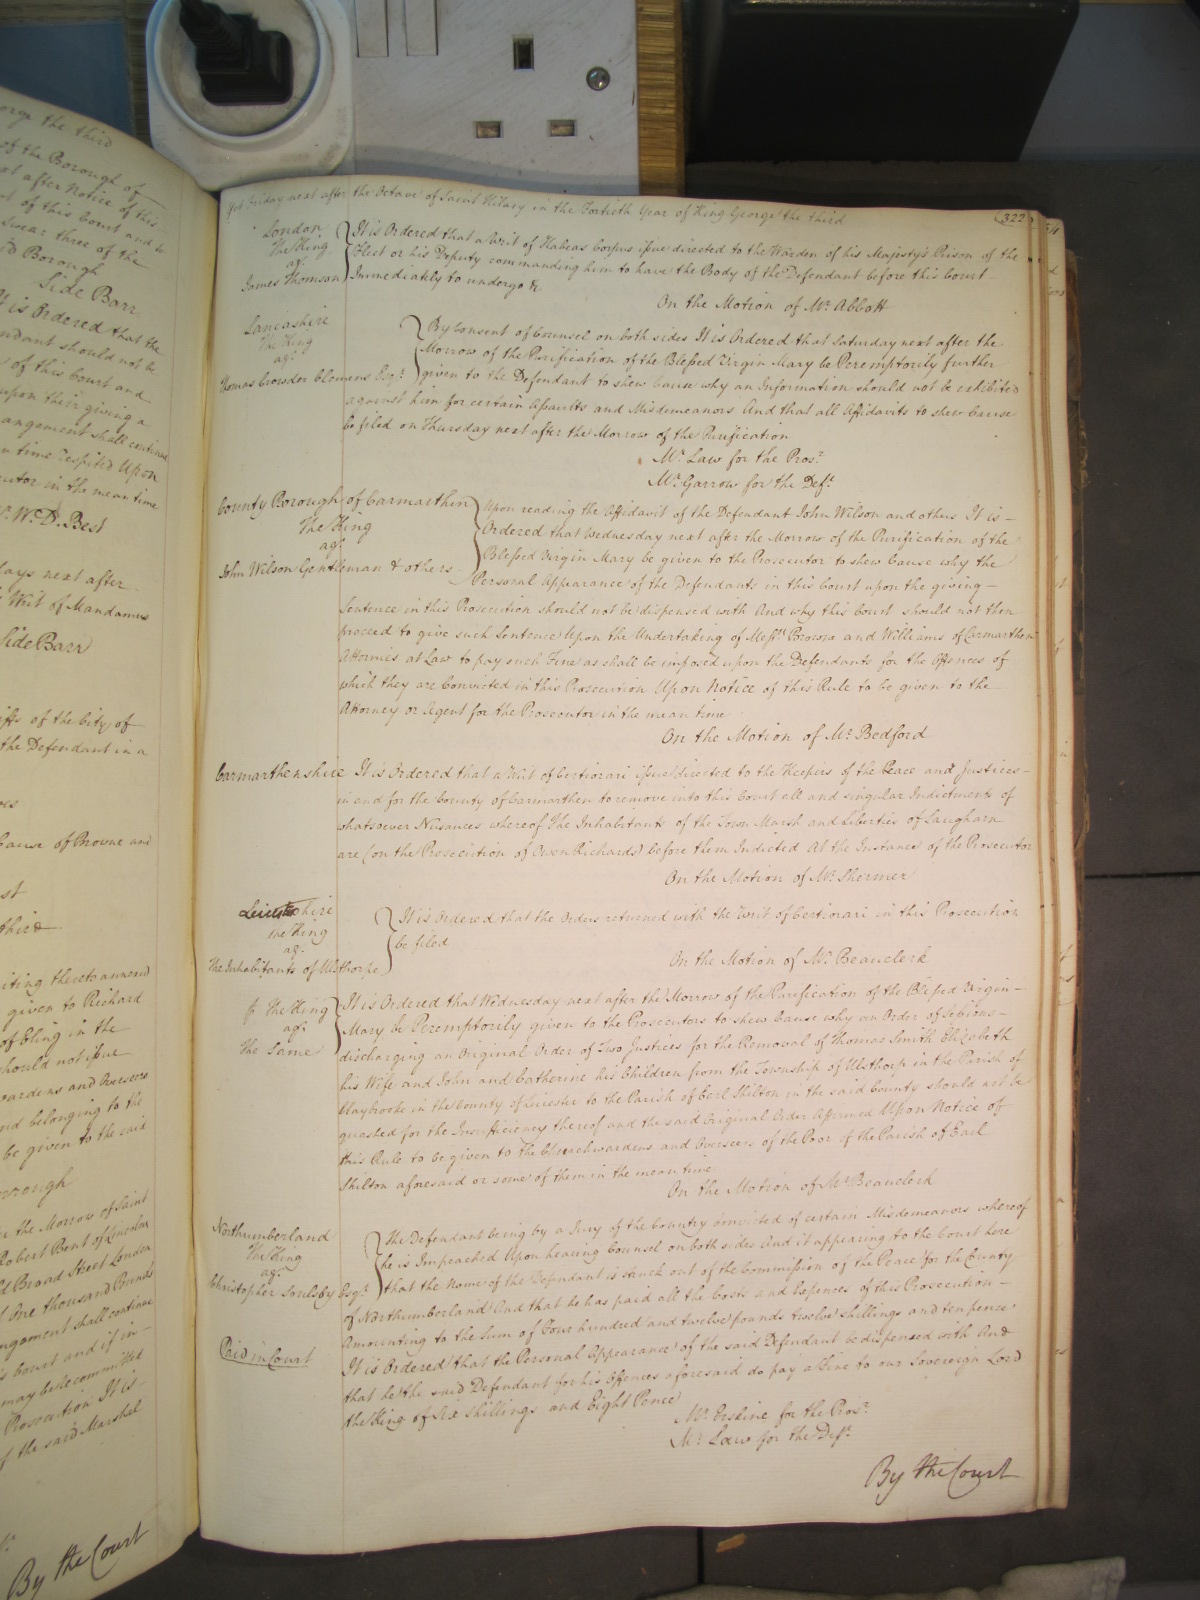 orge the third
of the Borough of
xt after Notice of this
t of this Court and to
Swear three of the
'd Borough
Side Barr
It is Ordered that the
ndant should not be
of this Court and
upon their giving a
angement shall continue
n time respited Upon
cutor in the mean time
W. D. Best
days next after
Writ of Mandamus
Side Barr
iffs of the City of
the Defendant in a
Cause of Browne and
st
third
iting thereto annexed
given to Richard
of Cling in the
should not issue
wardens and Overseers
nd belonging to the
be given to the said
orough
the Morrow of Saint
Robert Bent of Lincolns
d Broad Street London
One thousand Pounds
ngement shall continue
s Court and if in
may be be committed
Prosecution It is
f the said Marshel
By the Court
Friday next after the Octave of Saint Hilary in the Fortieth Year of King George the third
322
London
The King
agt
James Thomson
It is Ordered that a Writ of Habeas Corpus issue directed to the Warden of his Majesty's Prison of the
Fleet or his Deputy commanding him to have the Body of the Defendant before this Court
Immediately to undergo &c
On the Motion of Mr. Abbott
Lancashire
The King
agt
Thomas Crowder Clemens Esqr.
By Consent of Counsel on both sides It is Ordered that Saturday next after the
Morrow of the Purification of the Blessed Virgin Mary be Peremptorily further
given to the Defendant to shew Cause why an Information should not be exhibited
against him for certain Assaults and Misdemeanors And that all Affidavits to shew Cause
be filed on Thursday next after the Morrow of the Purification
Mr. Law for the Prosr.
Mr. Garrow for the Deft.
County Borough of Carmarthen
The King
agt
John Wilson Gentleman & others
Upon reading the Affidavit of the Defendant John Wilson and others It is
Ordered that Wednesday next after the Morrow of the Purification of the
Blessed Virgin Mary be given to the Prosecutor to shew Cause why the
Personal Appearance of the Defendants in this Court upon the giving
Sentence in this Prosecution should not be dispensed with And why this Court should not then
proceed to give such Sentence Upon the Undertaking of Messrs. Browne and Williams of Carmarthen
Attornies at Law to pay such Fine as shall be imposed upon the Defendants for the Offences of
which they are Convicted in this Prosecution Upon Notice of this Rule to be given to the
Attorney or Agent for the Prosecutor in the mean time
On the Motion of Mr. Bedford
Carmarthenshire It is Ordered that a Writ of Certiorari issue directed to the Keepers of the Peace and Justices
in and for the County of Carmarthen to remove into this Court all and singular Indictments of
whatsoever Nusances whereof The Inhabitants of the Town Marsh and Liberties of Laugharn
are (on the Prosecution of Owen Richards) before them Indicted At the Instance of the Prosecutor
On the Motion of Mr. Shermer
Leicestershire
The King
agt
The Inhabitants of Ulsthorpe
It is Ordered that the Orders returned with the Writ of Certiorari in this Prosecution
be filed
On the Motion of Mr. Beauclerk
The King
agt
The Same
It is Ordered that Wednesday next after the Morrow of the Purification of the Blessed Virgin
Mary be Peremptorily given to the Prosecutors to shew Cause why an Order of Sessions
discharging an Original Order of Two Justices for the Removal of Thomas Smith Elizabeth
his Wife and John and Catherine his Children from the Township of Ulsthorp in the Parish of
Claybrooke in the County of Leicester to the Parish of Earl Shilton in the said County should not be
quashed for the Insufficiency thereof and the said Original Order Affirmed Upon Notice of
this Rule to be given to the Churchwardens and Overseers of the Poor of the Parish of Earl
Shilton aforesaid or some of them in the mean time
On the Motion of Mr. Beauclerk
Northumberland
The King
agt
Christopher Soulsby Esqr.
The Defendant being by a Jury of the Country convicted of certain Misdemeanors whereof
he is Impeached Upon hearing Counsel on both sides And it appearing to the Court here
that the Name of the Defendant is struck out of the Commission of the Peace for the County
of Northumberland And that he has paid all the Costs and Expences of this Prosecution
Amounting to the Sum of Four hundred and twelve pounds twelve shillings and ten pence
It is Ordered that the Personal Appearance of the said Defendant be dispensed with And
that he the said Defendant for his Offences aforesaid do pay a Fine to our Sovereign Lord
the King of Six shillings and Eight Pence
Paid in Court
Mr. Erskine for the Prosr.
Mr. Law for the Deft.
By the Court